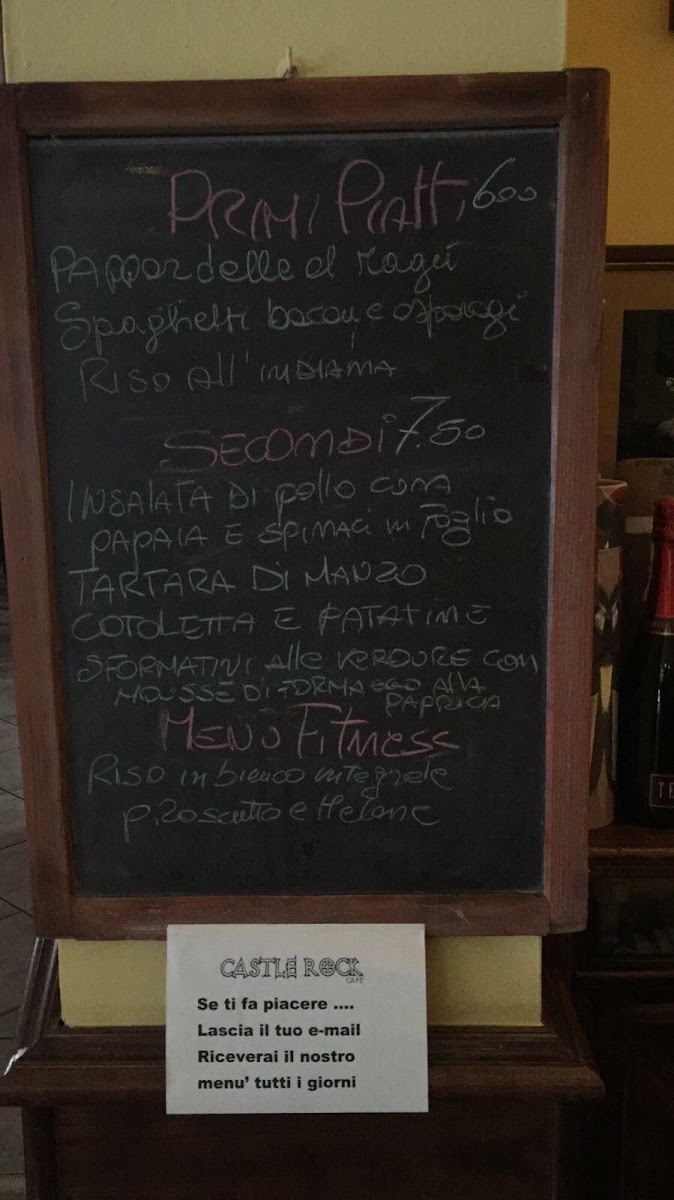 PRIMI PIATTI 600
PAPPARdelle al ragú
Spaghetti bacon e asparagi
RISO All'INDIANA
SECONDI 7.50
INSALATA DI pollo CON
PAPAIA E SPINACI IN Foglio
TARTARA DI MANZO
COTOLETTA E PATATINE
SFORMATINI Alle VERDURE CON
MOUSSE DI FORMAGGIO Alla
PAPRICA
MENU FITNESS
RISO in bianco integrale
p.zoscutto e Melone
CASTLE ROCK
CAFE
Se ti fa piacere ....
Lascia il tuo e-mail
Riceverai il nostro
menu' tutti i giorni